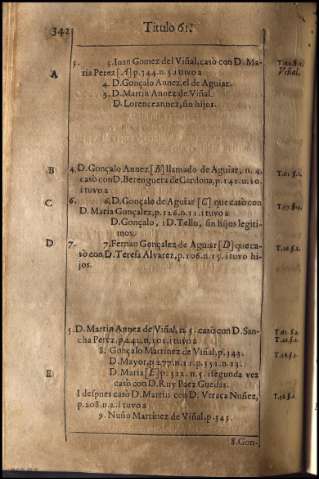 342 Titulo 61.
3. 3. Iuan Gomez del Viñal, casò con D. Ma-
ria Perez [A] p.344. n.5. i tuvo a
A
4. D. Gonçalo Annez, el de Aguiar.
5. D. Martin Annez de Viñal.
D. Lorenceannez, sin hijos.
Viñal.
B 4. D. Gonçalo Annez [B] llamado de Aguiar, n. 4.
casò con D. Berenguera de Cardona, p.141. n.10.
i tuvo a
C 6. 6. D. Gonçalo de Aguiar [C] que casò con
D. Maria Gonçalez, p.126. n.11. i tuvo a
D. Gonçalo, i D. Tello, sin hijos legiti-
mos.
D 7. 7. Fernan Gonçalez de Aguiar [D] que ca-
sò con D. Teresa Alvarez, p.106. n.15. i tuvo hi-
jos.
5. D. Martin Annez de Viñal, n. 5. casò con D. San-
cha Perez, p.241. n.101. i tuvo a
8. Gonçalo Martinez de Viñal, p.343.
D. Mayor, p.277. n.11. p.351. n.13.
E D. Maria [E] p.322. n.5. i segunda vez
casò con D. Ruy Paez Guedas.
I despues casò D. Martin con D. Veraca Nuñez,
p.208. n.2. i tuvo a
9. Nuño Martinez de Viñal, p.343.
8. Gon-